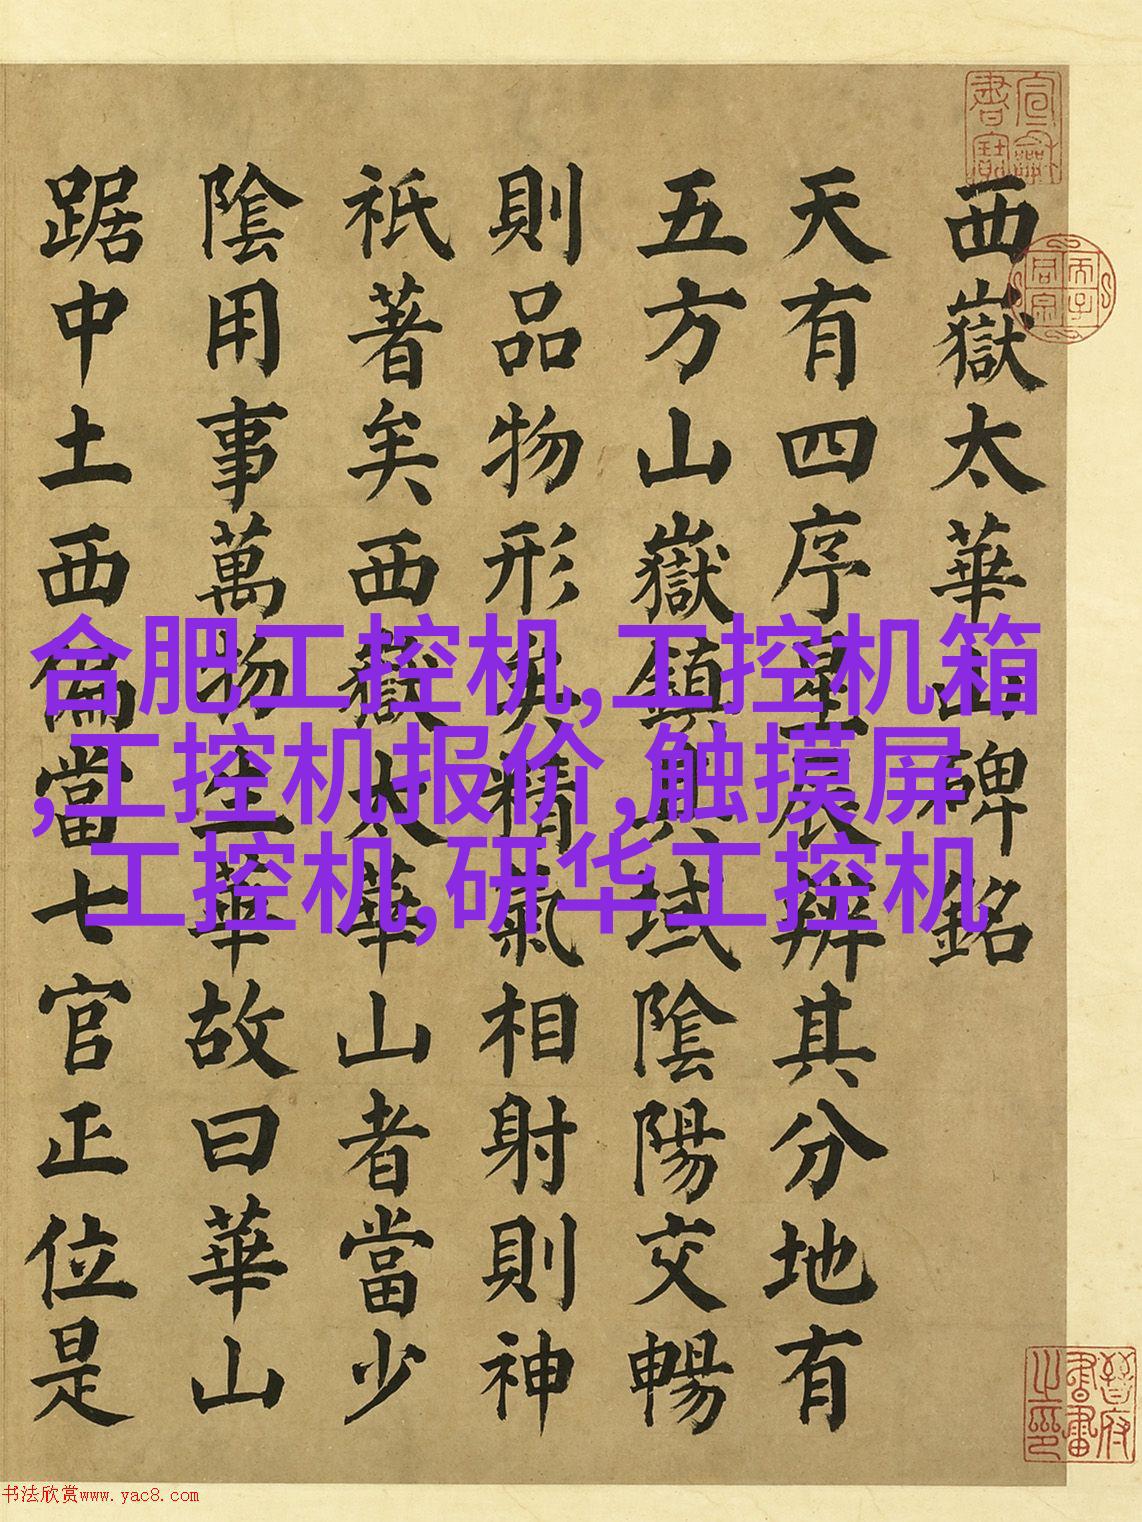 西嶽太華山碑銘
天有四序星辰辨其分地有
五方山嶽鎮其域陰陽交暢
則品物形矣精氣相射則神
祇著矣西嶽太華山者當少
陰用事萬物生華故曰華山
踞中土西偏當七官正位是
合肥工控机,工控机箱
,工控机报价,触摸屏
工控机,研华工控机
晉府書畫之印
书法欣赏www.yac8.com